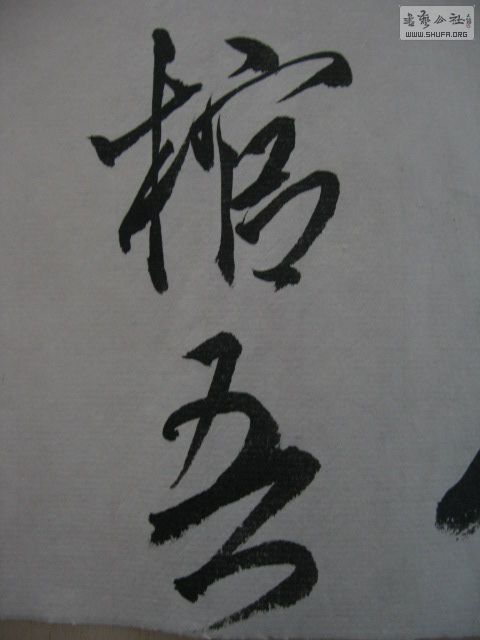 書藝公社
WWW.SHUFA.ORG
棺
吾